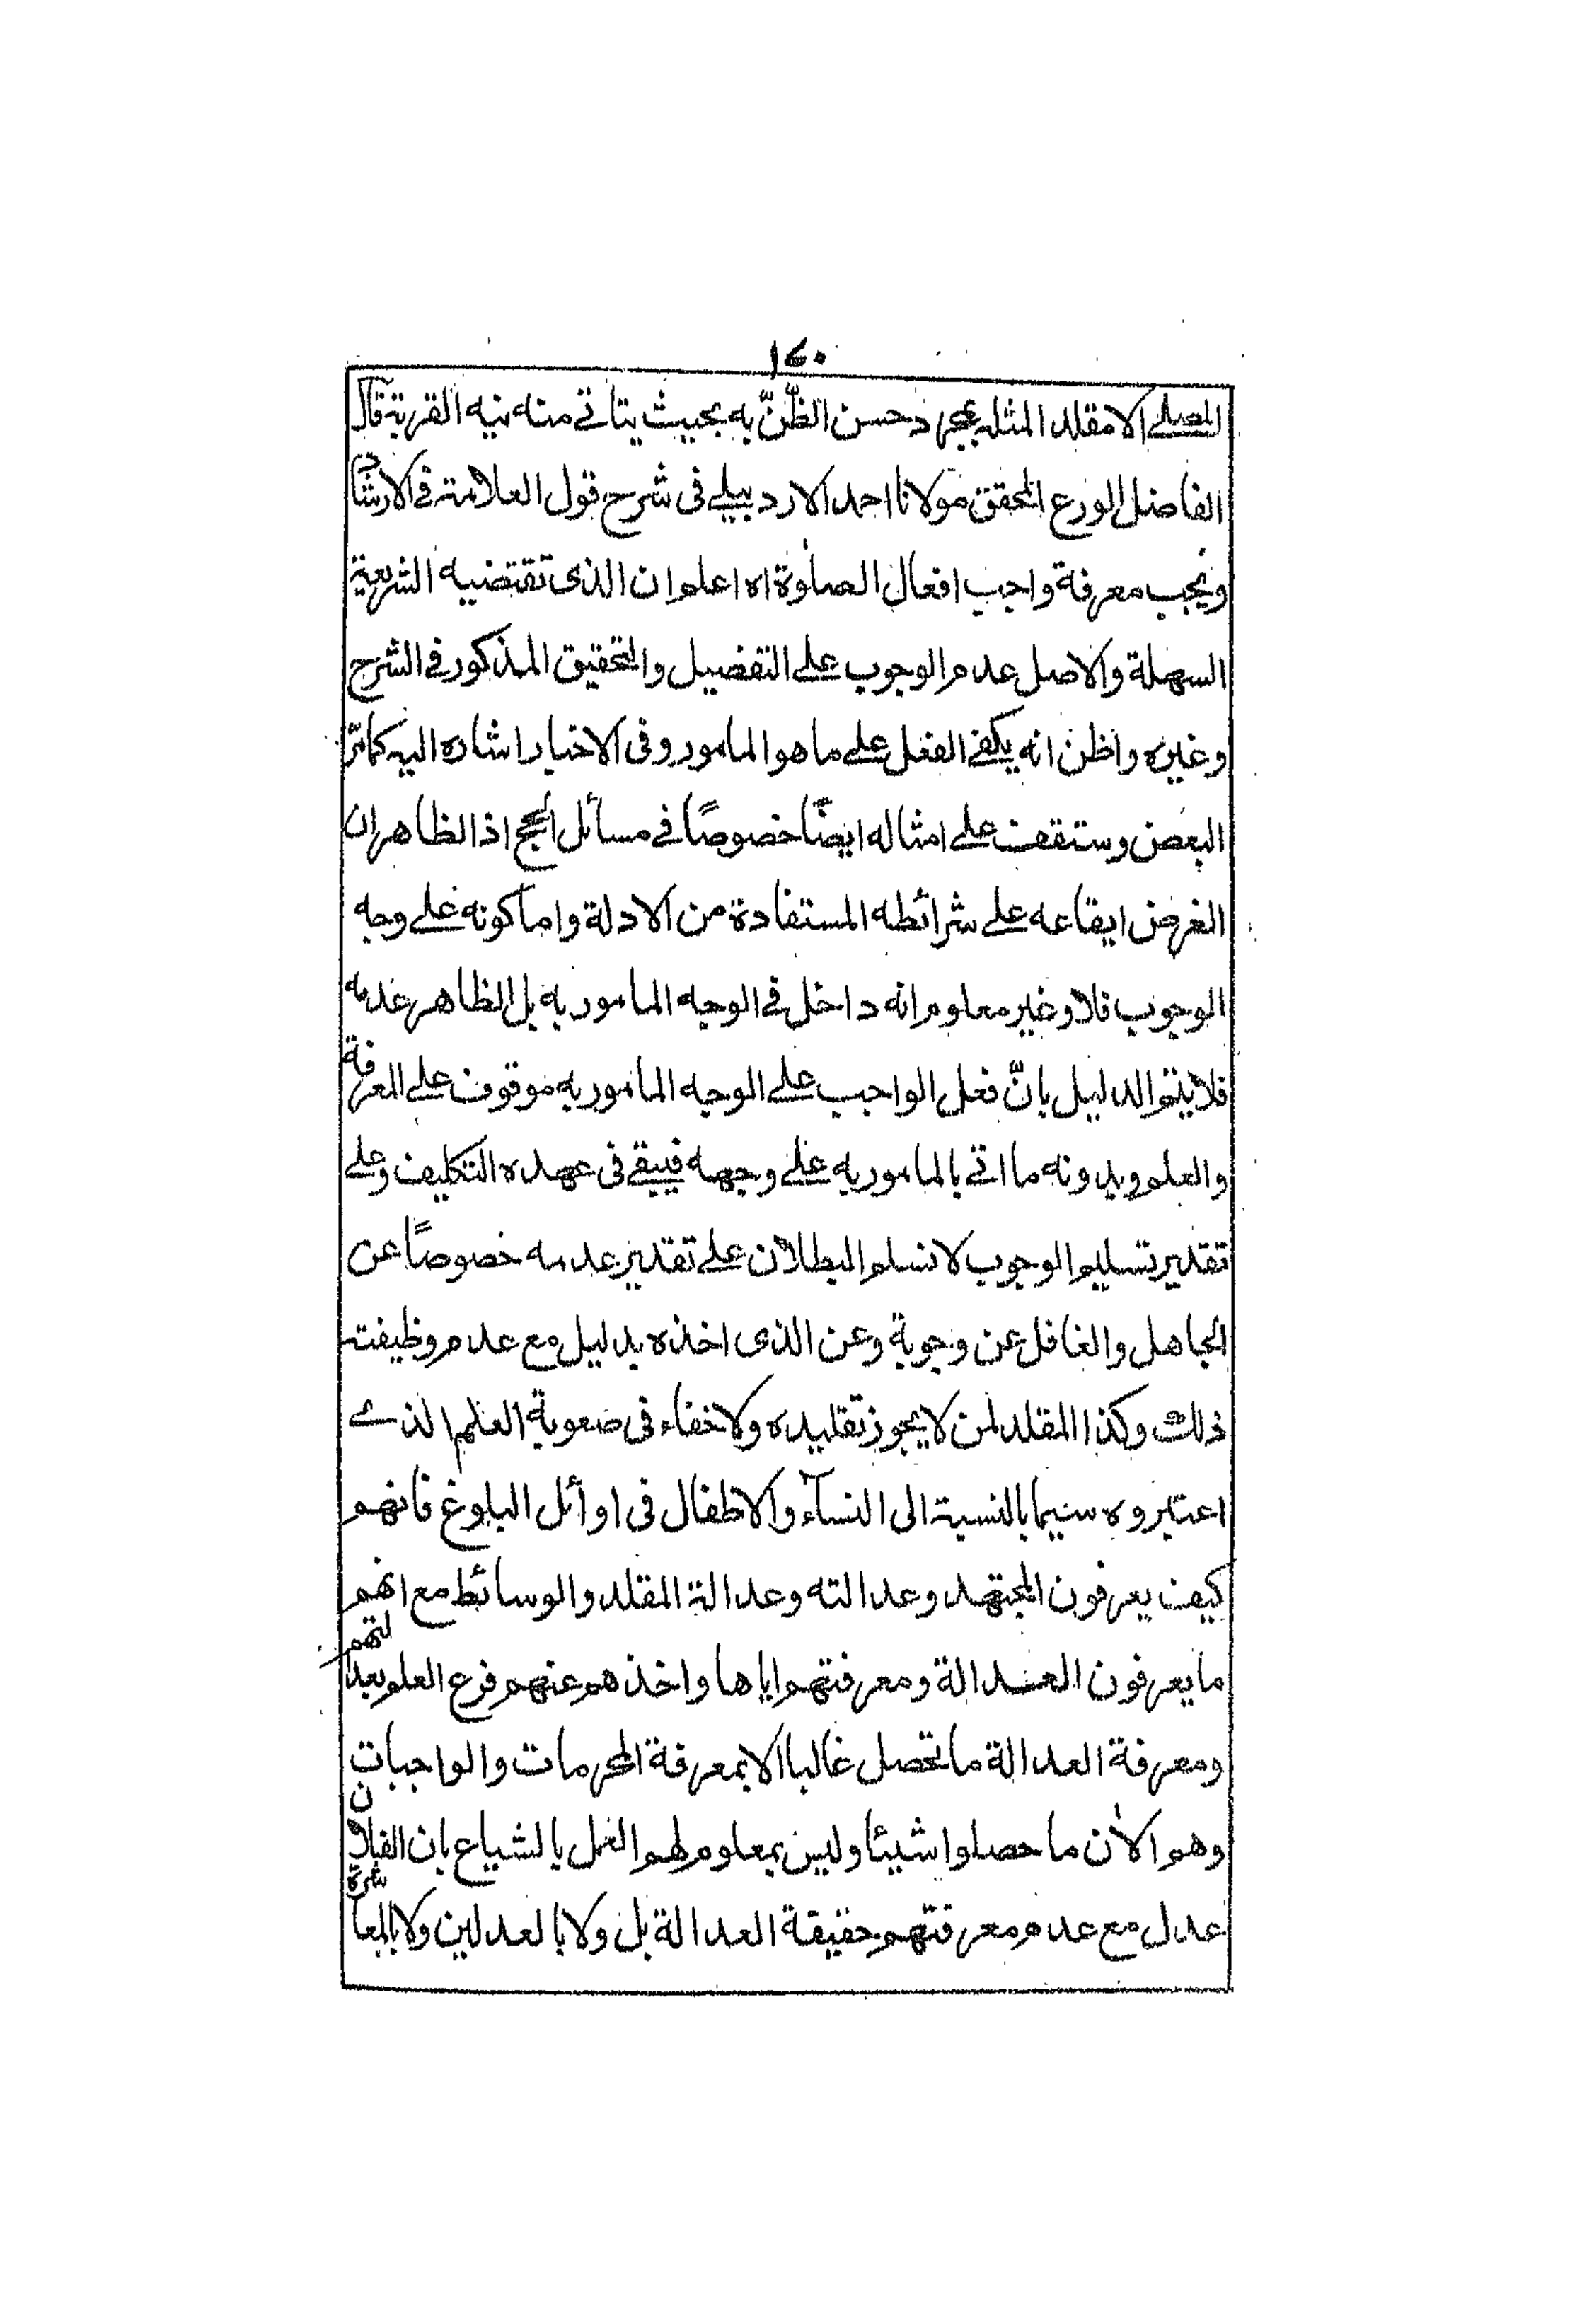 ١٤٠
المصلي الا مقلد المثله بمجرد حسن الظنّ به بحيث يتاتي منه نيه القربة قال
الفاضل الورع المحقق مولانا احمد الاردبيلي في شرح قول العلامة في الارشاد
ويجب معرفة واجب افعال الصلٰوة اه اعلم ان الذي تقتضيه الشريعة
السهلة والاصل عدم الوجوب علي التفضيل والتحقيق المذكور في الشرح
وغيره واظن انه يكفي الفعل علي ما هو المامور وفي الاخبار اشاره اليه كما مرّ
البعض وستقف علي امثاله ايضًا خصوصًا في مسائل الحج اذ الظاهر ان
الغرض ايقاعه علي شرائطه المستفادة من الادلة واما كونه علي وجه
الوجوب فلا وغير معلوم انه داخل في الوجه المامور به بل الظاهر عدمه
فلا يتم الدليل بانّ فعل الواجب علي الوجه المامور به موقوف علي المعرفة
والعلم وبدونه ما اتي بالمامور به علي وجهه فيبقي في عهده التكليف وعلي
تقدير تسليم الوجوب لا نسلم البطلان علي تقدير عدمه خصوصًا عن
الجاهل والغافل عن وجوبة وعن الذي اخذه بدليل مع عدم وظيفته
ذلك وكذا المقلد لمن لا يجوز تقليده ولا خفاء في صعوبة العلم الذے
اعتبروه سيما بالنسبة الى النسآء والاطفال في اوائل البلوغ فانهم
كيف يعرفون المجتهد وعدالته وعدالة المقلد والوسائط مع انهم
ما يعرفون العدالة ومعرفتهم اياها واخذهم عنهم فرع العلم بعدالتهم
ومعرفة العدالة ما تحصل غالبا الا بمعرفة المحرمات والواجبات
وهم الاٰن ما حصلوا شيئا وليس بمعلوم لهم العمل بالشياع بان الفلان
عدل مع عدم معرفتهم حقيقة العدالة بل ولا بالعدلين ولا بالمعاشرة